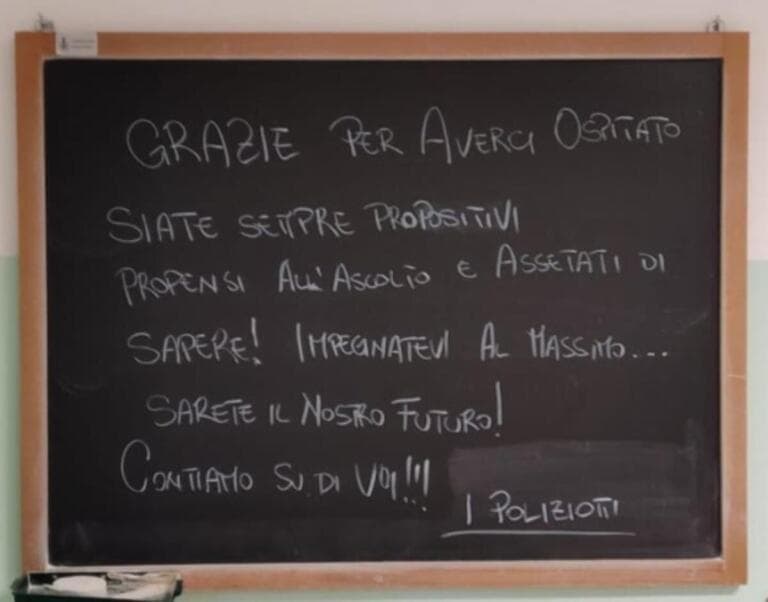 GRAZIE PER AVERCI OSPITATO
SIATE SEMPRE PROPOSITIVI
PROPENSI ALL'ASCOLTO E ASSETATI DI
SAPERE! IMPEGNATEVI AL MASSIMO...
SARETE IL NOSTRO FUTURO!
CONTIAMO SU DI VOI!!!
I POLIZIOTTI